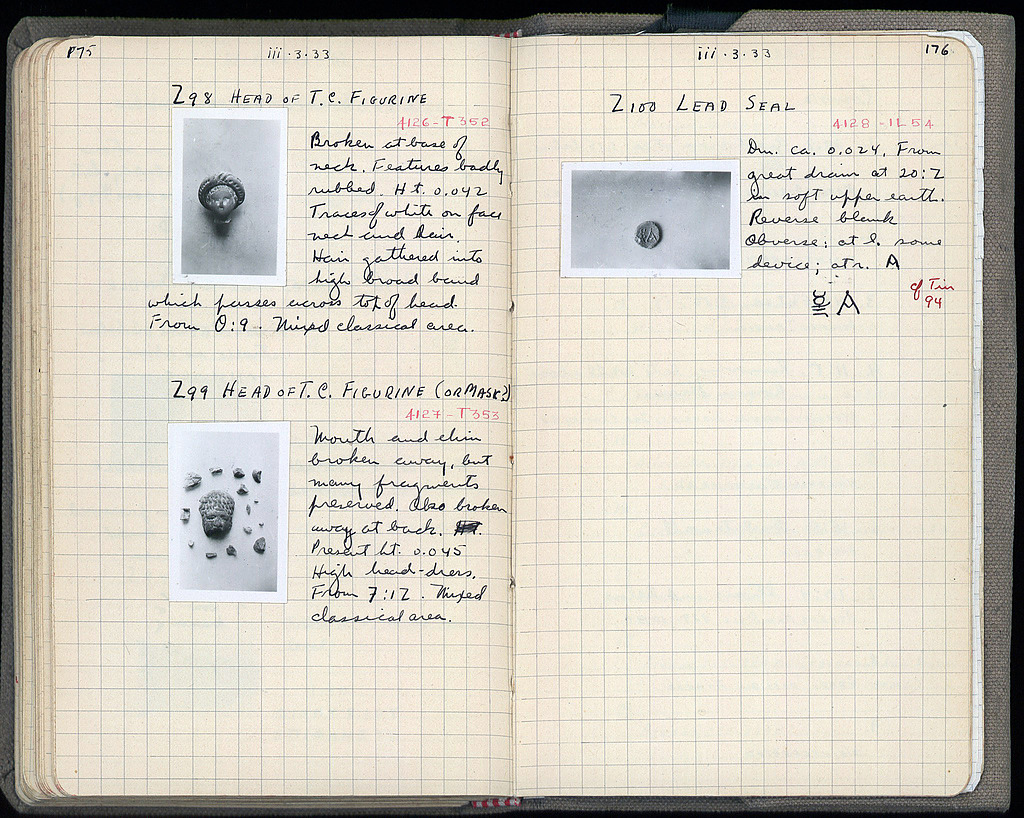 175
iii·3·33
Z98 HEAD OF T.C. FIGURINE
4126-T352
Broken at base of
neck. Features badly
rubbed. Ht. 0.042
Traces of white on face
neck and hair.
Hair gathered into
high broad band
which passes across top of head.
From Θ:9. Mixed classical area.
Z99 HEAD OF T.C. FIGURINE (OR MASK?)
4127-T353
Mouth and chin
broken away, but
many fragments
preserved. Also broken
away at back.
Present ht. 0.045
High head-dress.
From 7:IZ. Mixed
classical area.
iii·3·33
176
Z100 LEAD SEAL
4128-IL54
Dm. ca. 0.024. From
great drain at 20:Z
in soft upper earth.
Reverse blank
Obverse: at l. some
device; at r. A
A
cf Tin
94